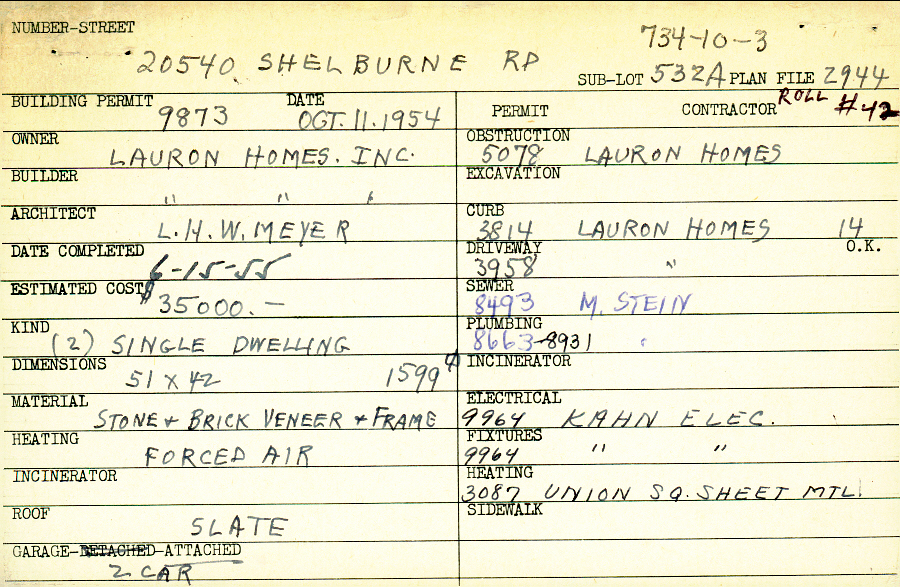 NUMBER-STREET
734-10-3
20540 SHELBURNE RD
SUB-LOT 532A PLAN FILE 2944
BUILDING PERMIT 9873 DATE OCT. 11. 1954
PERMIT CONTRACTOR ROLL #42
OWNER LAURON HOMES. INC.
OBSTRUCTION 5078 LAURON HOMES
BUILDER " " "
EXCAVATION
ARCHITECT L.H.W. MEYER
CURB 3814 LAURON HOMES 14
DATE COMPLETED 6-15-55
DRIVEWAY 3958 " O.K.
ESTIMATED COST $35000.—
SEWER 8493 M. STEIN
KIND (2) SINGLE DWELLING
PLUMBING 8663-8931 "
DIMENSIONS 51 X 42 1599
INCINERATOR
MATERIAL STONE + BRICK VENEER + FRAME
ELECTRICAL 9964 KAHN ELEC.
HEATING FORCED AIR
FIXTURES 9964 " "
INCINERATOR
HEATING 3087 UNION SQ. SHEET MTL.
ROOF SLATE
SIDEWALK
GARAGE-DETACHED-ATTACHED
2 CAR